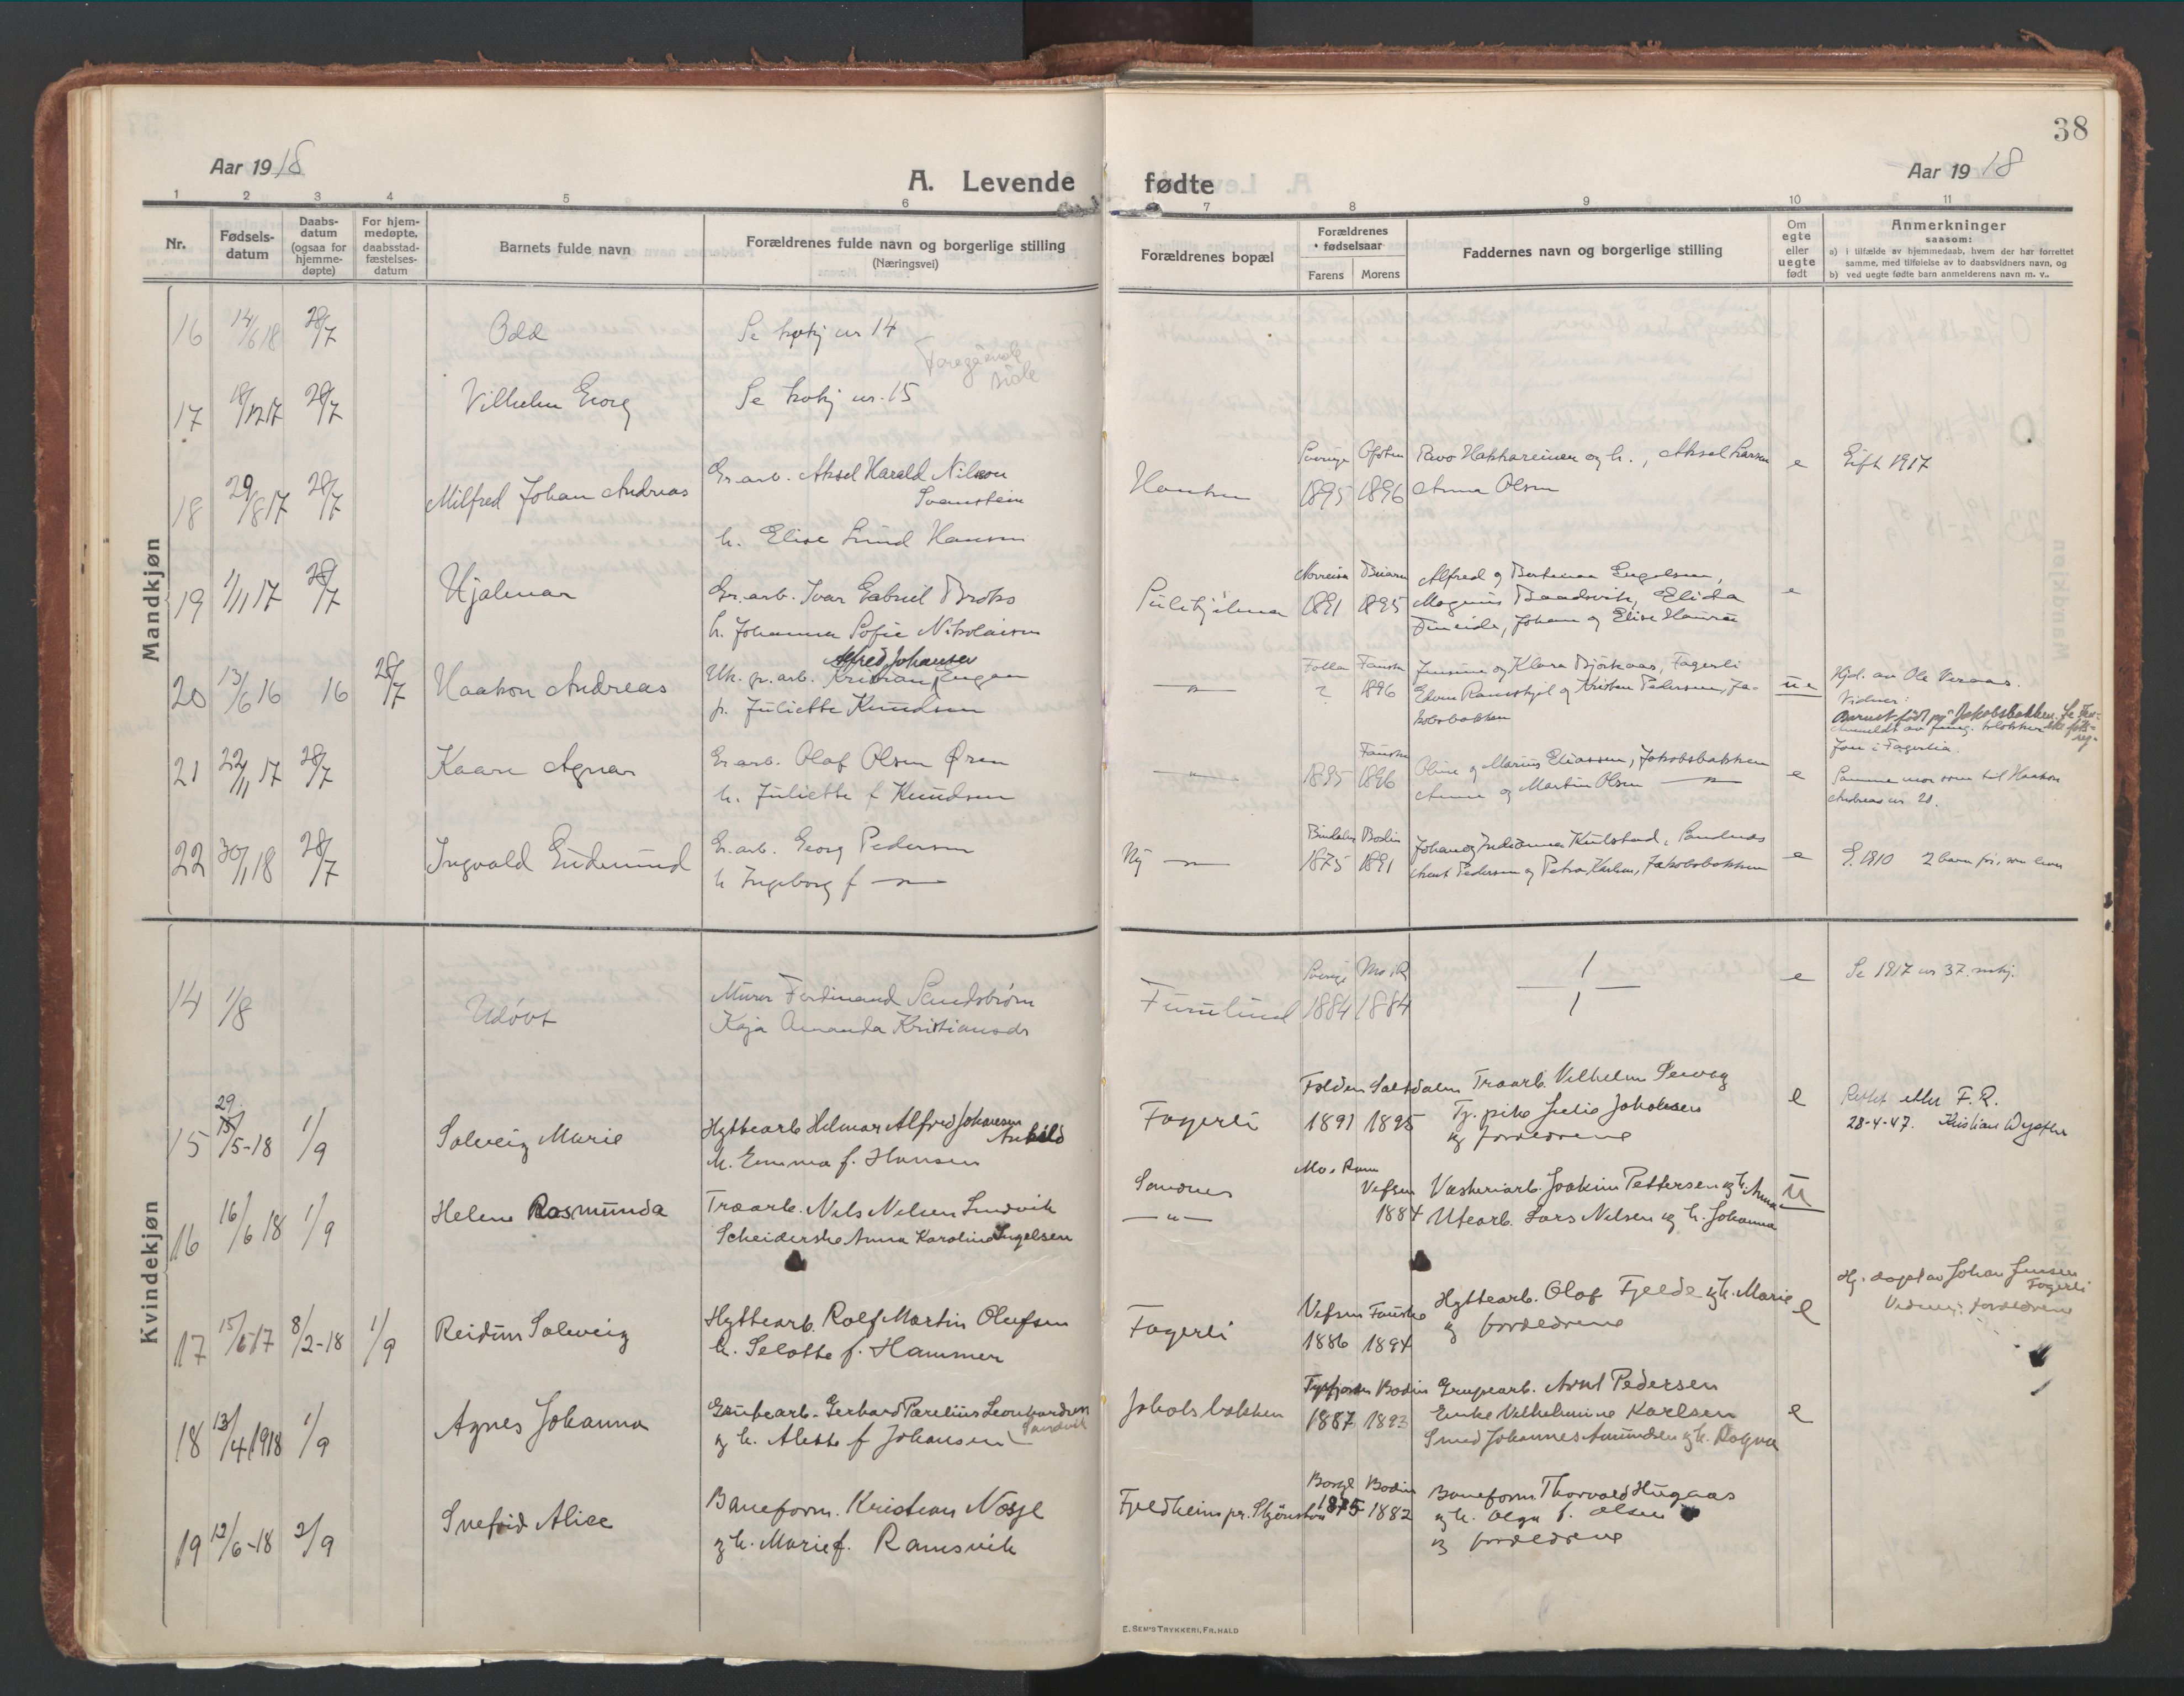 38
Aar 1918
A. Levende fødte
Aar 1918
1 2 3 4 5 6 7 8 9 10 11
Nr.
Fødsels-
datum
Daabs-
datum
(ogsaa for
hjemme-
døpte)
For hjem-
medøpte,
daabsstad-
fæstelses-
datum
Barnets fulde navn
Forældrenes fulde navn og borgerlige stilling
(Næringsvei)
Forældrenes bopæl
Forældrenes
fødselsaar
Farens Morens
Faddernes navn og borgerlige stilling
Om
egte
eller
uegte
født
Anmerkninger
saasom:
a) i tilfælde av hjemmedaab, hvem der har forrettet
samme, med tilføielse av to daabsvidners navn, og
b) ved uegte fødte barn anmelderens navn m. v..
Mandkjøn
16 14/6 18 28/7 Odd Se kvkj nr 14
Foregående
side
17 18/12 17 28/7 Vilhelm Georg Se kvkj nr. 15
18 29/8 17 28/7 Milfred Johan Andreas
Gr. arb. Aksel Harald Nilsson
Svanstein
h. Elise Lund Hansen
Hanken
Sverige Ofoten
1895 1896
Paavo Hakkareinen og h., Aksel Larsen
Anna Olsen
e Gift 1917
19 1/11 17 28/7 Hjalmar
Gr. arb. Ivar Gabriel Broks
h. Johanna Sofie Nikolaisen
Sulitjelma
Beiarn
1891 1895
Alfred og Bertina Engelsen,
Magnus Baadsvik, Elida
Fineide, Johan og Elise Hansen
e
20 13/6 16 16 28/7 Haakon Andreas
Alfred Johansen
Uk. gr. arb. Kristian Eugen
p. Juliette Knudsen
— " —
Folla Fauske
? 1896
Jensine og Klara Bjørkaas, Fagerli
Edvin Ramskjel og Kristian Pedersen, Ja-
kobsbakken
ue
Hjd. av Ole Veraas.
Vidner:
Barnet født på Jakobsbakken.
Fagerlia.
21 22/11 17 28/7 Kaare Agnar
Gr. arb. Olaf Olsen Øren
h. Juliette f Knudsen
— " —
Fauske
1895 1896
Oline og Marius Eliassen, Jakobsbakken
Anna og Martin Olsen — " —
e
Samme mor som til Haakon
Andreas nr 20.
22 30/1 18 28/7 Ingvald Gudmund
Gr. arb. Georg Pedersen
h Ingeborg f — " —
Ny — " —
Bindalen Bodin
1875 1891
Arnt Pedersen og Petra Karlsen, Jakobsbakken
e
G. 1910 2 barn før, som lever
Kvindekjøn
14 1/8 Udøpt
Murer Ferdinand Sandstrøm
Kaja Amanda Kristiansdr
Furulund
Sverige Mo i R
1884 1884
e Se 1917 nr 37. mkj.
15 29/5-18 1/9 Solveig Marie
Hyttearb Helmar Alfred Johansen
h. Emma f. Hansen
Fagerli
Folden Saltdalen
1891 1895
Traarb. Vilhelm
Tj. pike Julie Johansen
og forældrene
e
Rettet etter F. R.
28-4-47. Kristian
16 16/6 18 1/9 Helene Rasmunda
Traarb. Nils Nelsen Sundvik
Scheiderske Anna Karoline Ingelsen
Sandnes
— " —
Mo i Rana
Vefsen
1884
Vaskeriarb. Joakim Pettersen og h. Anna
Utearb. Lars Nilsen og h. Johanna
u
17 15/6 17 8/2-18 1/9 Reidun Solveig
Hyttearb. Rolf Martin Olufsen
h. Selotte f. Hammer
Fagerli
Vefsen Fauske
1886 1894
Hyttearb. Olaf Fjelde og h. Marie
og forældrene
e
Hj. døpt av Johan Jensen
Fagerli
Vidner: forældrene
18 13/4 1918 1/9 Agnes Johanna
Grubearb. Gerhard Parelius Leonhardsen
Sandvik
og h. Alette f Johansen
Jakobsbakken
Tysfjorden Bodin
1887 1893
Grubearb. Arnt Pedersen
Enke Vilhelmine Karlsen
Smed Johannes Amundsen og h. Ragna
e
19 12/6-18 2/9 Snefrid Alice
Baneform. Kristian Nøsje
og h. Marie f. Ramsvik
Fjeldheim pr. Skjønstaa
Bodin
1875 1882
Baneform. Thorvald Hugaas
og h. Olga f. Olsen
og forældrene
E. SEM'S TRYKKERI, FR.HALD